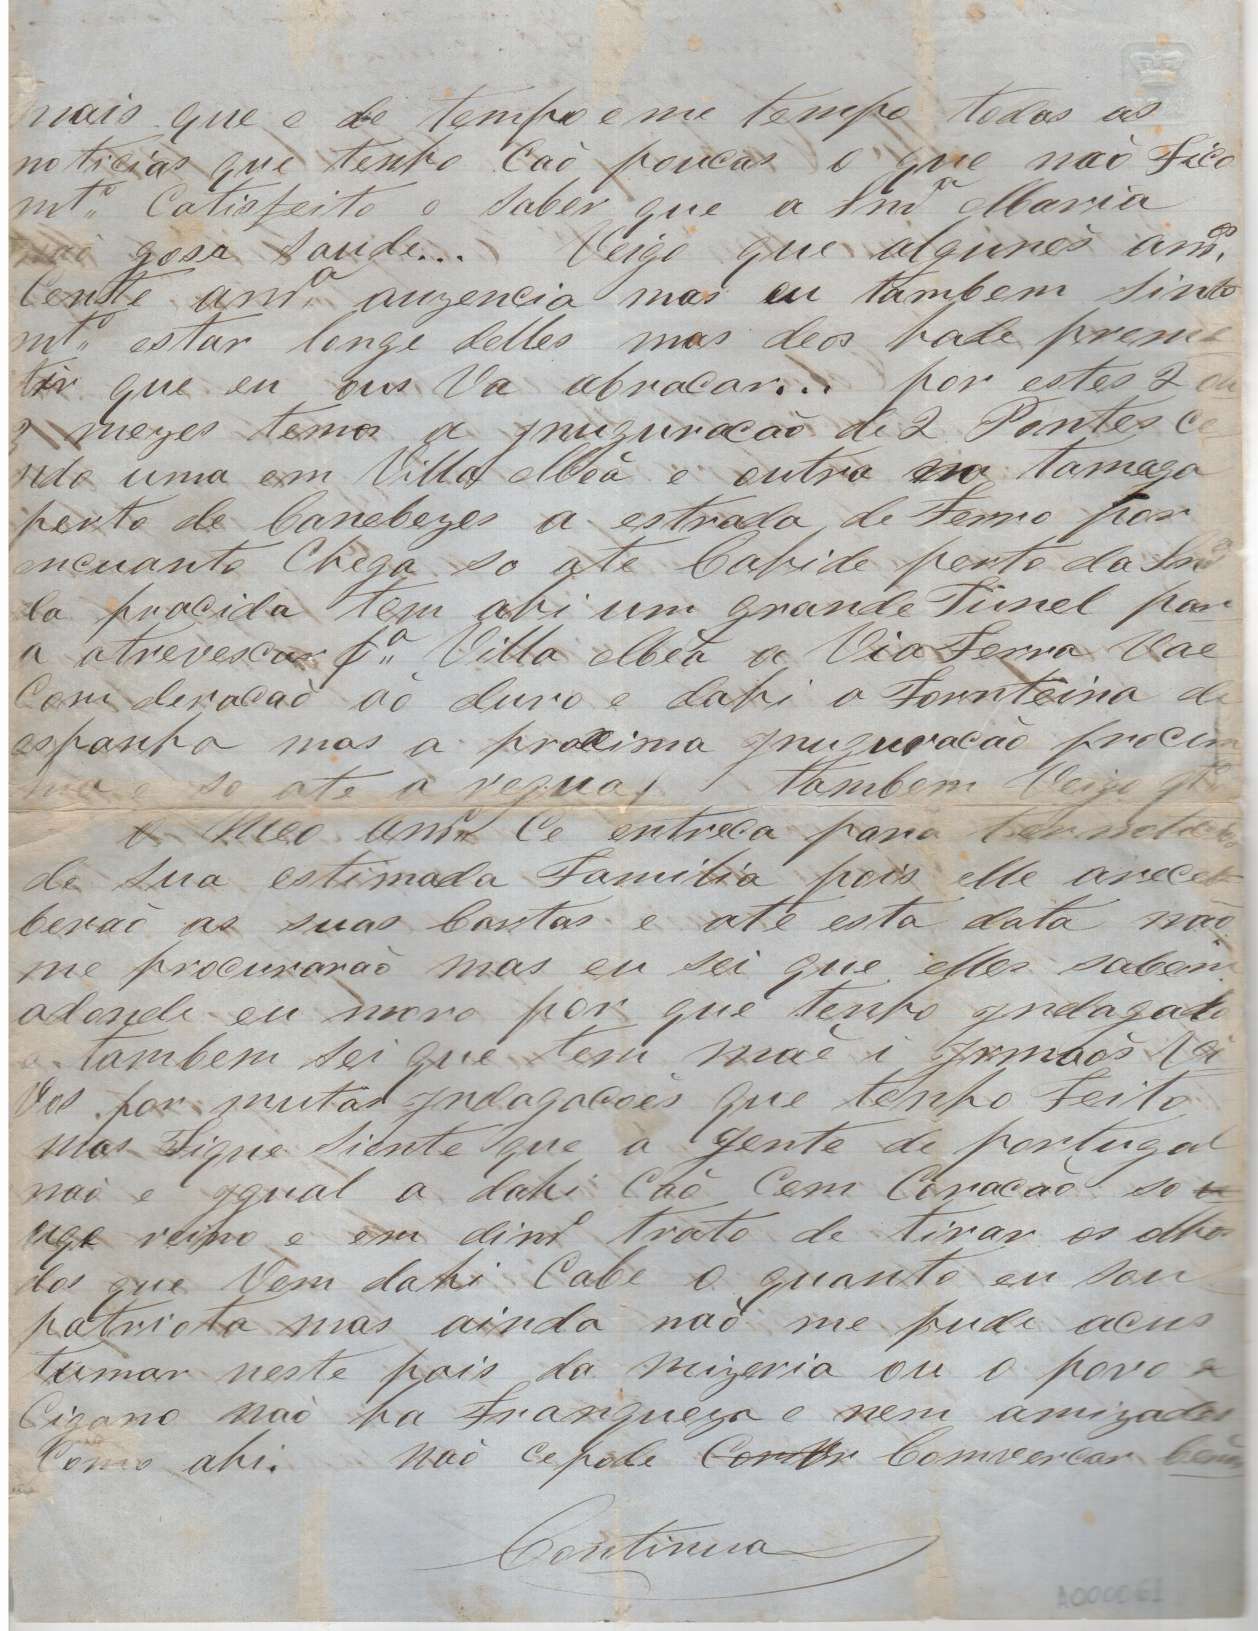 mais que e de tempo eme tempo todas as
noticias que tenho Caõ poucas o que naõ Fico
mtº Catisfeito e saber que a Snrª Maria
naõ gosa saude... Veigo que algunes amºs
Cente amª auzencia mas eu tambem sinto
mtº estar longe delles mas deos hade preme
tir que eu ous Va abracar... por estes 2 ou
3 mezes temos a ynuguracaõ de 2 Pontes Ce
ndo uma em Villa Meã e outra no tamega
perto de Canebezes a estrada de Ferro por
encuanto Chega so ate Cahide perto da Snrª
da pracida tem ahi um grande Tunel par
a atrevescar pª Villa Meã a Via Ferra Vae
Com deracaõ aõ duro e dahi a Fornteina de
espanha mas a proxima ynuguracaõ procim
ma e so ate a regua, tambem Veigo qᵉ
o Meo amº Ce entreca para ter noticias
de sua estimada Familia pois elle arecce
beraõ as suas Cartas e ate esta data naõ
me procuraraõ mas eu sei que elles sabem
adonde eu moro por que tenho yndagado
e tambem sei que tem maẽ i yrmaõs Vi
Vos por mutas yndagacoẽs que tenho Feito
mas Fique siente que a gente de portugal
naõ e ygual a dahi Caõ Cem Coracaõ so
uge reino e em dinrº trato de tirar os olhos
dos que Vem dahi Cabe o quanto eu sou
patriota mas ainda naõ me pude acus
tumar neste pais da mizeria ou o povo e
Cigano naõ ha Franqueza e nem amizades
Como ahi. naõ cepode Comvercar Cem
Continua
A000061